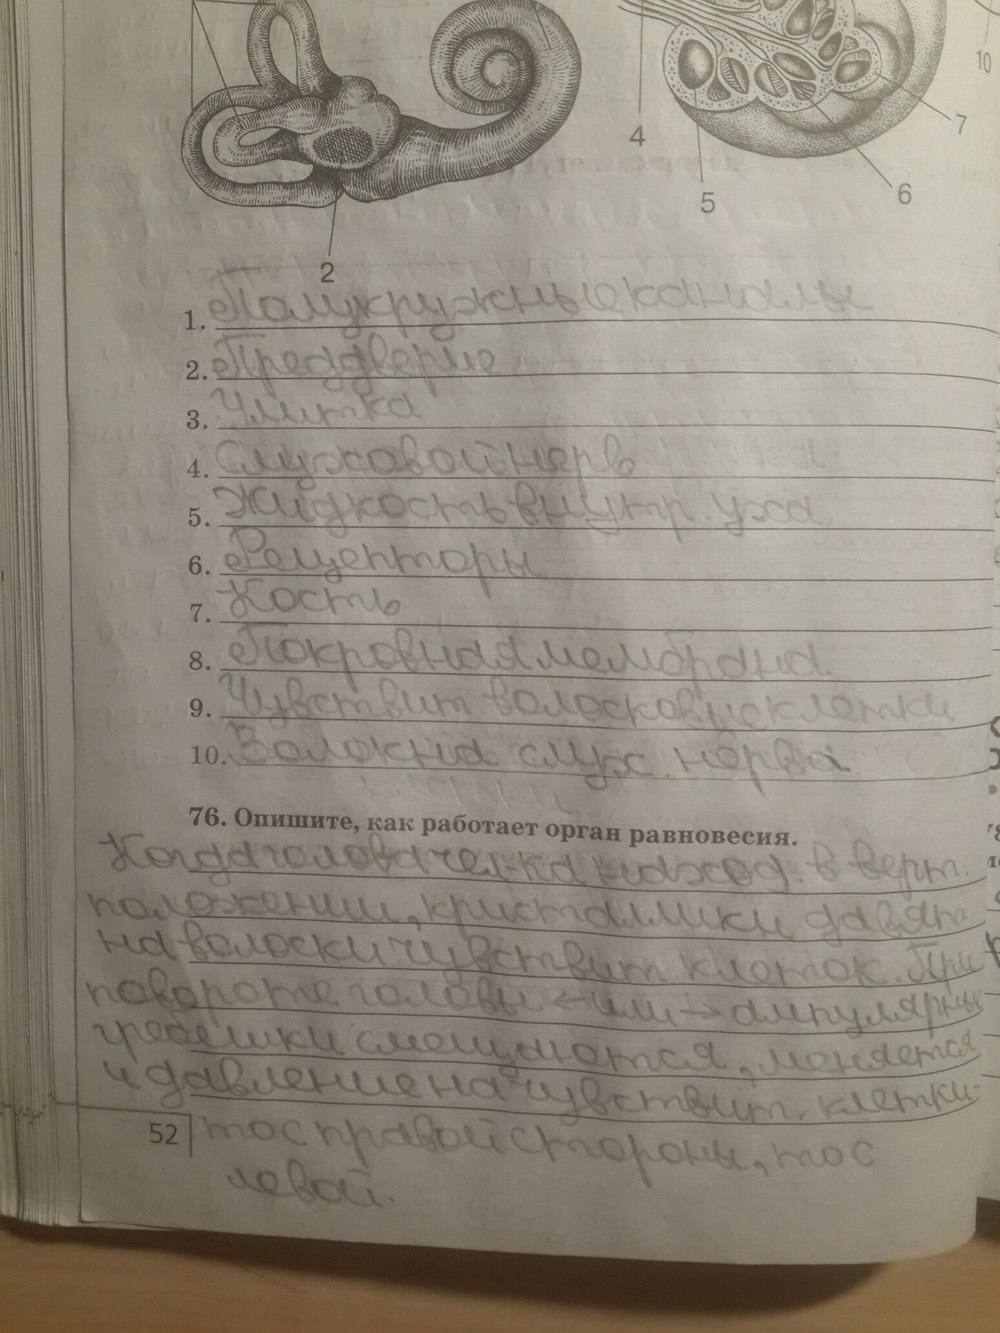 10
4
7
5
6
2
1. Полукружные каналы
2. Преддверие
3. Улитка
4. Слуховой нерв
5. Жидкость внутр. уха
6. Рецепторы
7. Кость
8. Покровная мембрана.
9. Чувствит волосковые клетки
10. Волокна слух. нерва
76. Опишите, как работает орган равновесия.
Когда голова чел-ка наход. в верт.
положении, кристаллики давят
на волоски чувствит. клеток. При
повороте головы ← или → ампулярные
гребешки смещаются, меняется
и давление на чувствит. клетки-
то с правой стороны, то с
левой.
52